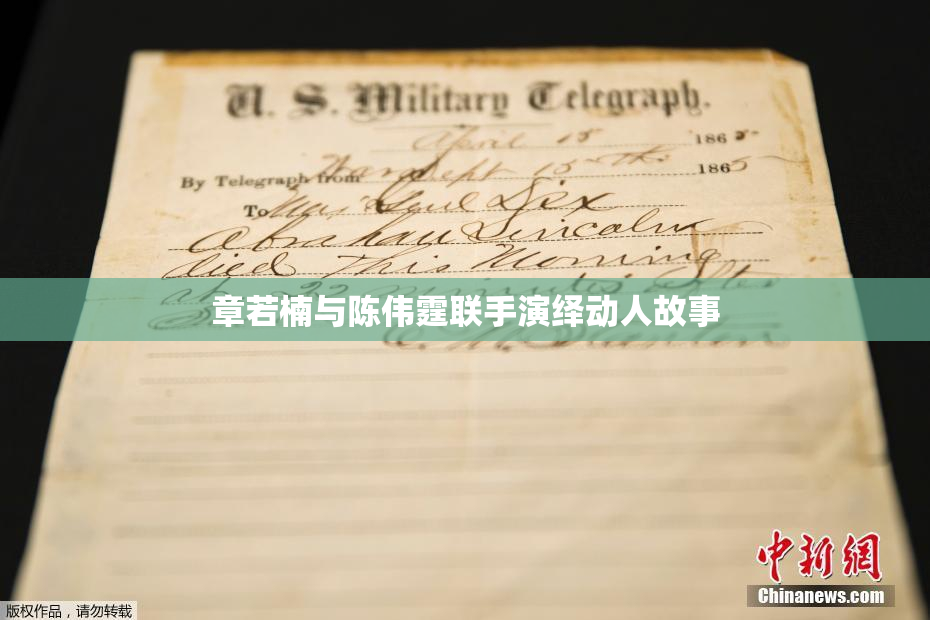 U. S. Military Telegraph.
April 15 1865
By Telegraph from War Dept 15th 1865
To Maj Genl Dix
Abraham Lincoln
died This Morning
at 22 minutes after
章若楠与陈伟霆联手演绎动人故事
E. M. Stanton
中新網
Chinanews.com
版权作品，请勿转载